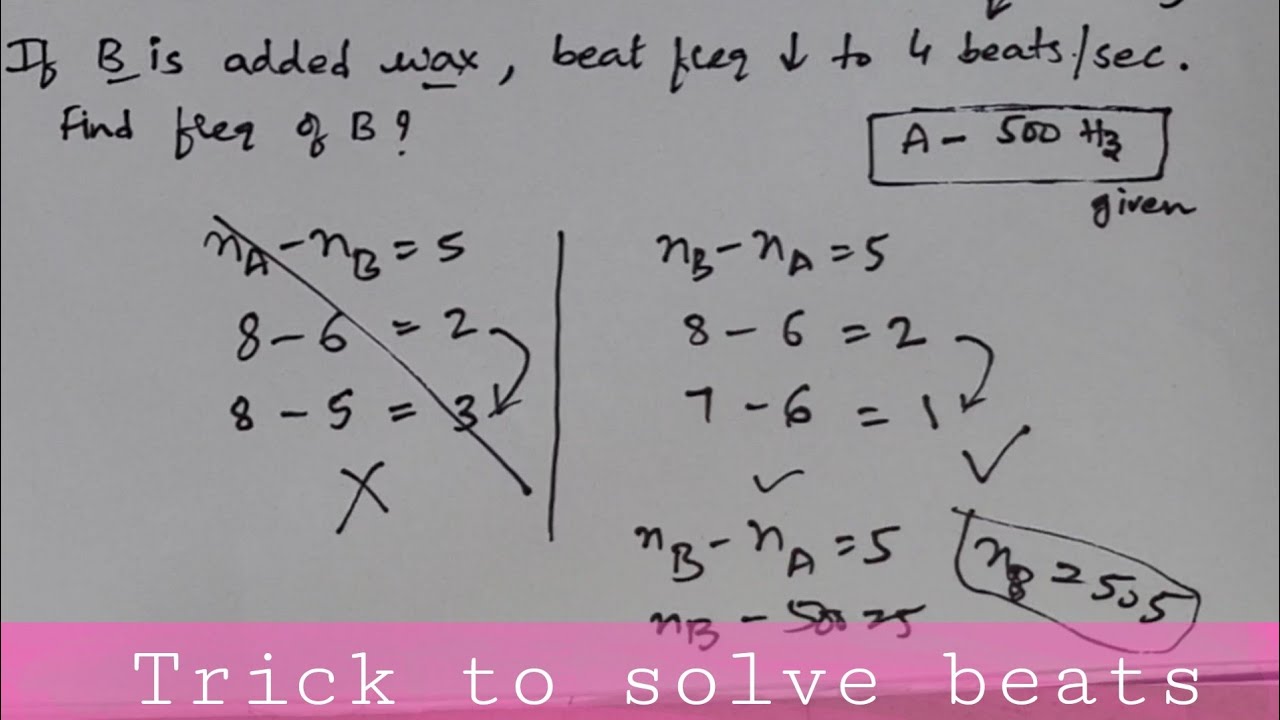 If B is added wax, beat freq ↓ to 4 beats/sec.
Find freq of B?
A - 500 Hz
given
nA - nB = 5
8 - 6 = 2
8 - 5 = 3
X
nB - nA = 5
8 - 6 = 2
7 - 6 = 1
✓ ✓
nB - nA = 5
nB - 500 = 5
nB = 505
Trick to solve beats